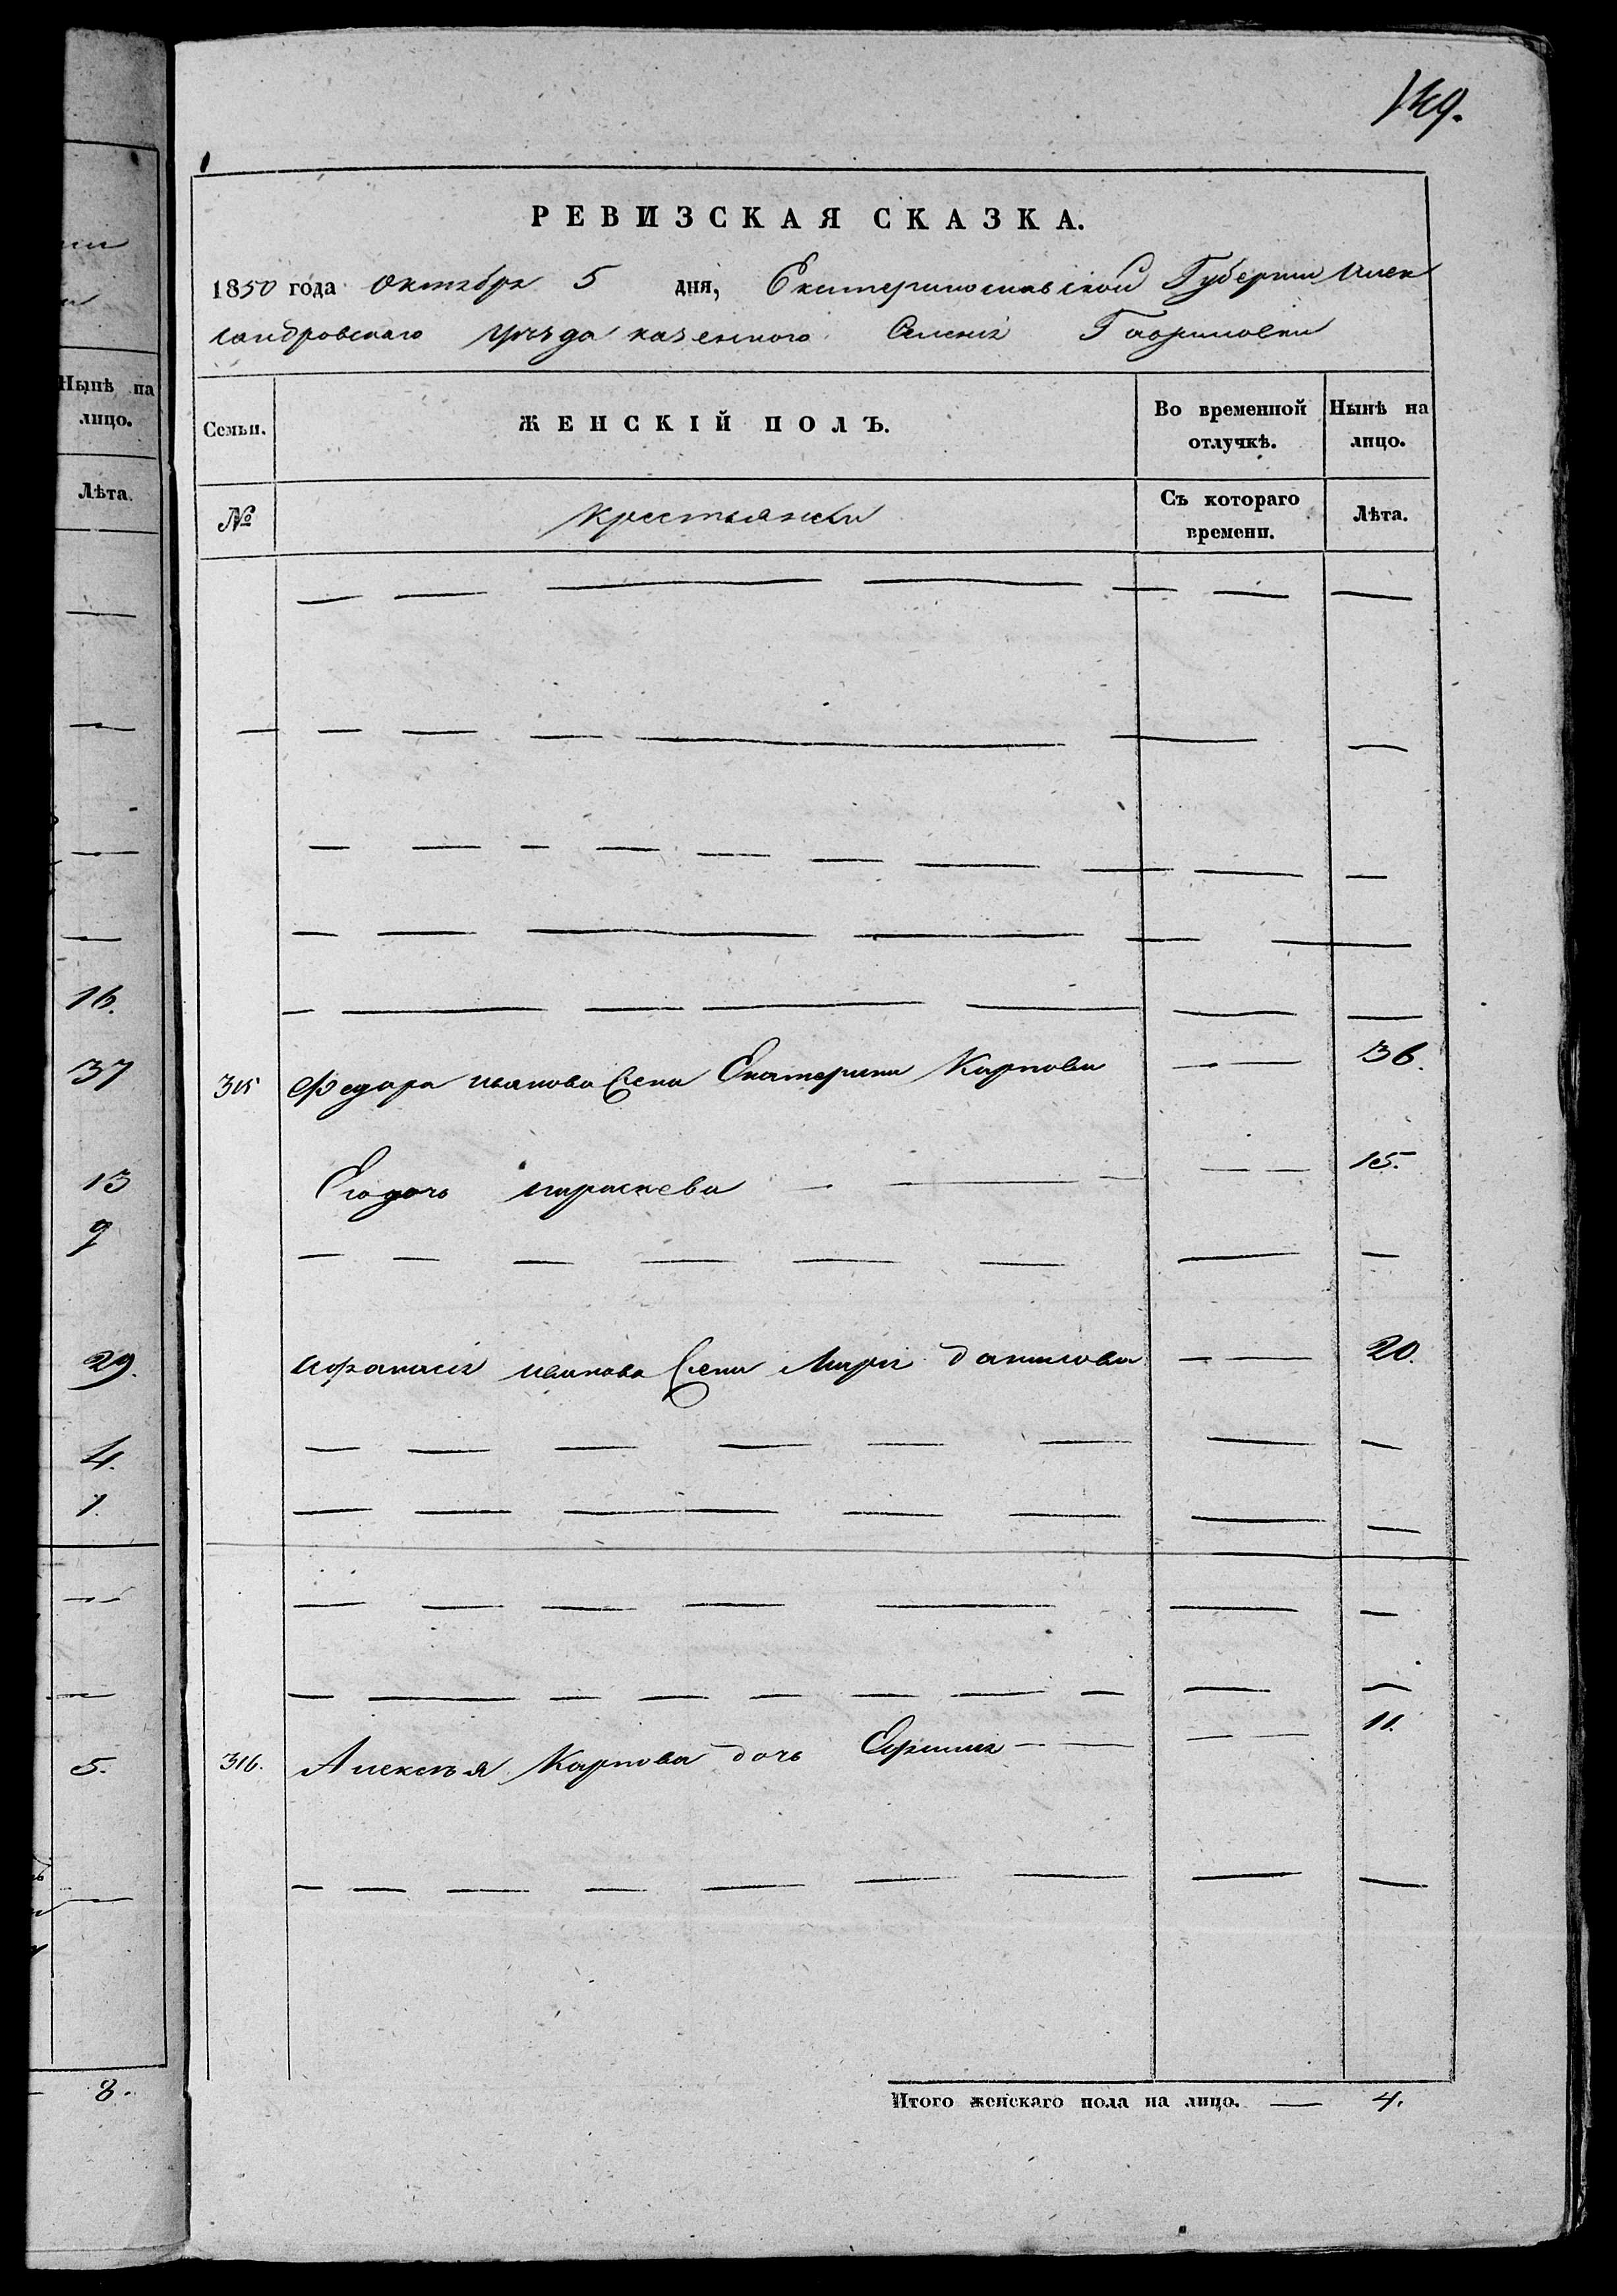 149.
РЕВИЗСКАЯ СКАЗКА.
1850 года октября 5 дня, Екатеринославской Губернии Алек
сандровскаго уезда казенного Селения Гавриловки
Нынѣ на лицо.
Лѣта.
Семьи. ЖЕНСКІЙ ПОЛЪ. Во временной отлучкѣ. Нынѣ на лицо.
№ крестьянки Съ котораго времени. Лѣта.
16.
37
315 Федора иванова жена Екатерина Карпова — — 36.
13
Его дочь параскева — — — — — 15.
9
29.
Афанасія иванова жена Марія данилова — — 20.
4.
1.
5.
316. Алексѣя Карпова дочь — — — — 11.
8.
Итого женскаго пола на лицо. — 4.